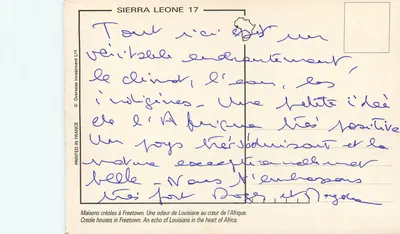 SIERRA LEONE 17
Tout ici est un
véritable enchantement,
le climat, l'eau, les
indigènes - Une petite idée
de l'Afrique très positive
Un pays très séduisant et la
nature exceptionnellement
belle - Nous t'embrassons
très fort Roger et
© Overseas Investment Ltd
PRINTED IN FRANCE
Maisons créoles à Freetown. Une odeur de Louisiane au cœur de l'Afrique.
Creole houses in Freetown. An echo of Louisiana in the heart of Africa.